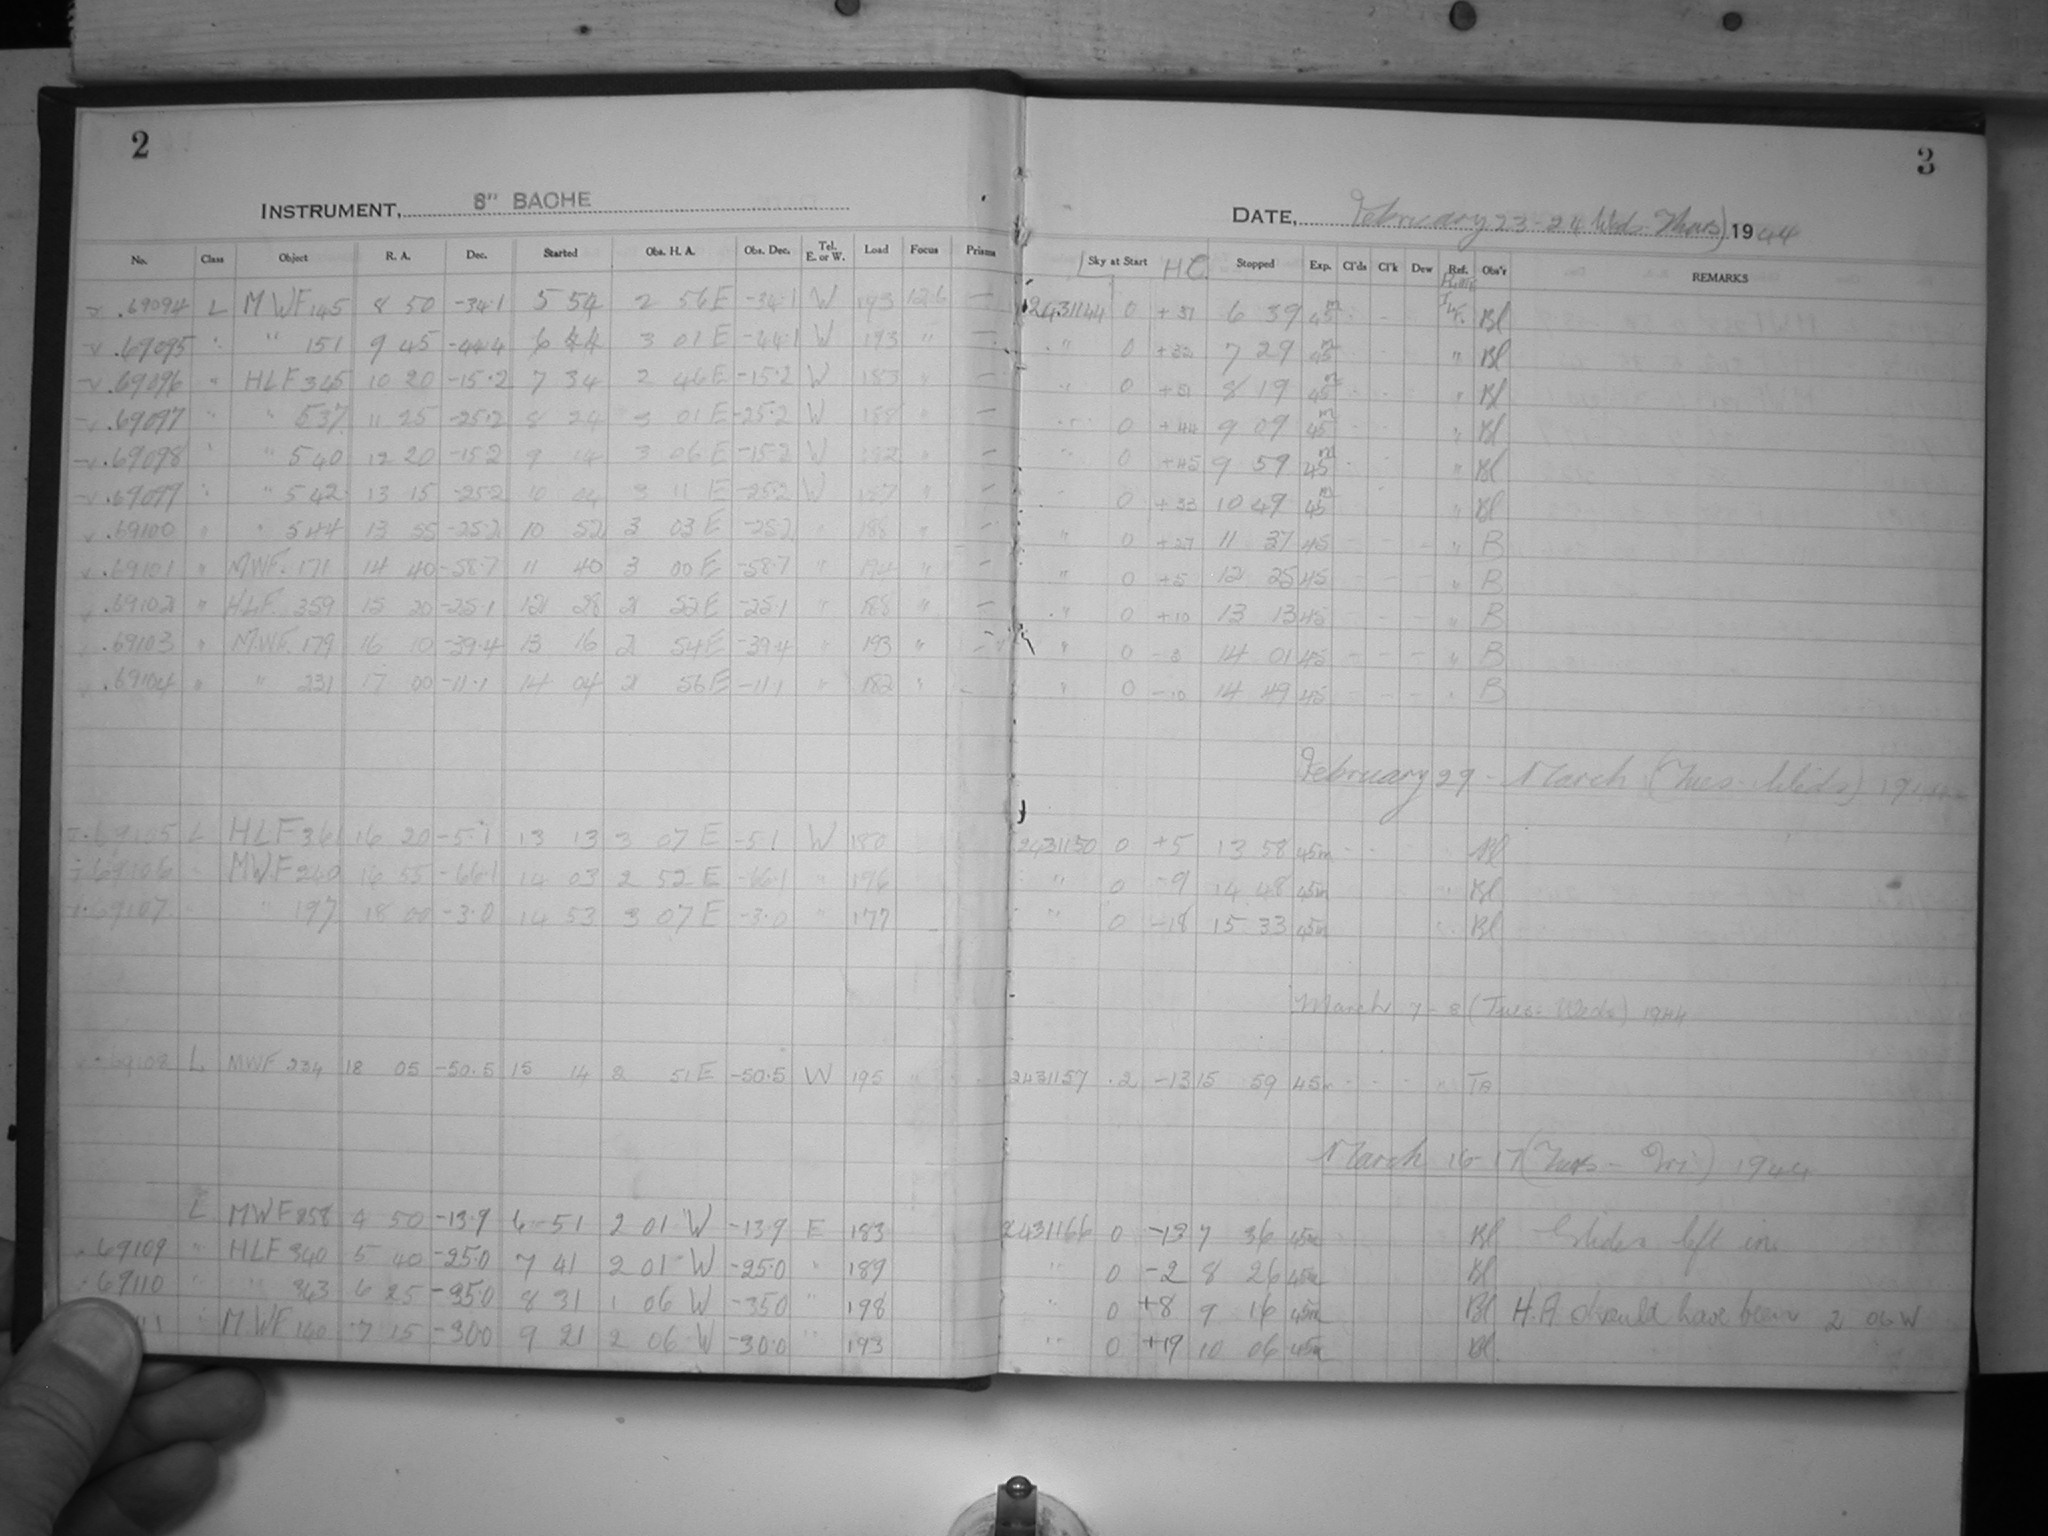 2
INSTRUMENT, 8" BACHE
No. Class Object R. A. Dec. Started Obs. H. A. Obs. Dec. Tel. E. or W. Load Focus Prisms
.69094 L MWF 145 8 50 -34.1 5 54 2 56 E -34.1 W 193 12.6 —
.69095 " " 151 9 45 -44.4 6 44 3 01 E -44.1 W 193 " —
.69096 " HLF 345 10 20 -15.2 7 34 2 46 E -15.2 W 183 " —
.69097 " " 537 11 25 -25.2 8 24 3 01 E -25.2 W 188 " —
.69098 " " 540 12 20 -15.2 9 14 3 06 E -15.2 W 182 " —
.69099 " " 542 13 15 -25.2 10 04 3 11 E -25.2 W 187 " —
.69100 " " 544 13 55 -25.2 10 52 3 03 E -25.2 " 188 " —
.69101 " MWF. 171 14 40 -58.7 11 40 3 00 E -58.7 " 194 " —
.69102 " HLF. 359 15 20 -25.1 12 28 2 52 E -25.1 " 188 " —
.69103 " MWF. 179 16 10 -39.4 13 16 2 54 E -39.4 " 193 " —
.69104 " " 231 17 00 -11.1 14 04 2 56 E -11.1 " 182 " —
.69105 L HLF 361 16 20 -5.1 13 13 3 07 E -5.1 W 180
.69106 " MWF 240 16 55 -66.1 14 03 2 52 E -66.1 " 196
.69107 " " 197 18 00 -3.0 14 53 3 07 E -3.0 " 177
.69108 L MWF 234 18 05 -50.5 15 14 2 51 E -50.5 W 195 "
L MWF 258 4 50 -13.9 6 51 2 01 W -13.9 E 183
.69109 " HLF 340 5 40 -25.0 7 41 2 01 W -25.0 " 189
.69110 " " 343 6 25 -35.0 8 31 1 06 W -35.0 " 198
11 " MWF 140 7 15 -30.0 9 21 2 06 W -30.0 " 193
3
DATE, February 23-24 Weds-Thurs) 1944
Sky at Start H.C. Stopped Exp. Cl'ds Cl'k Dew Ref. Obs'r REMARKS
2431144 0 +31 6 39 45m - - Bl
" 0 +32 7 29 45m " Bl
" 0 +31 8 19 45m " Bl
" 0 +44 9 09 45m " Bl
" 0 +45 9 59 45m " Bl
" 0 +33 10 49 45m " Bl
" 0 +27 11 37 45 - - - " B
" 0 +5 12 25 45 - - - " B
" 0 +10 13 13 45 - - - " B
" 0 -3 14 01 45 - - - " B
" 0 -10 14 49 45 - - - " B
February 29 - March (Tues-Weds) 1944
2431150 0 +5 13 58 45m Bl
" 0 -9 14 48 45m " Bl
" 0 -18 15 33 45m " Bl
March 7-8 (Tues-Weds) 1944
2431157 .2 -13 15 59 45m - - - " TA
March 16-17 (Thurs - Fri) 1944
2431166 0 -13 7 36 45m Bl Slides left in.
" 0 -2 8 26 45m Bl
" 0 +8 9 16 45m Bl H.A should have been 2 06 W
" 0 +19 10 06 45m Bl